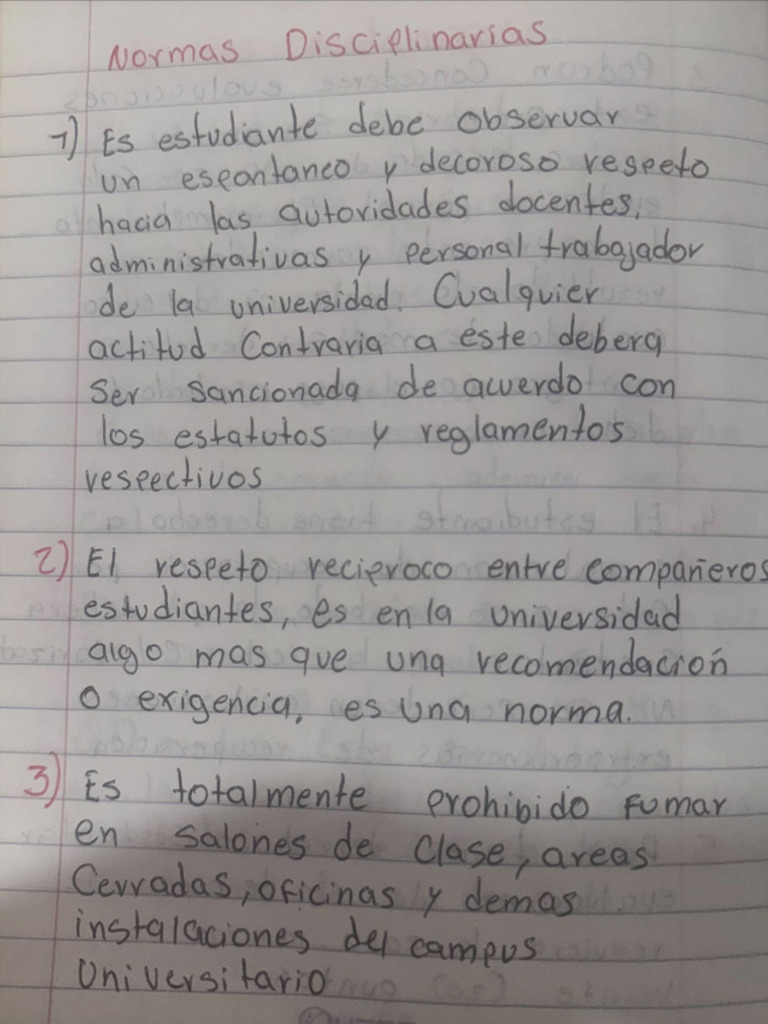 Normas Disciplinarias
1) Es estudiante debe observar
un espontaneo y decoroso respeto
hacia las autoridades docentes,
administrativas y personal trabajador
de la universidad. Cualquier
actitud Contraria a este debera
ser sancionada de acuerdo con
los estatutos y reglamentos
respectivos
2) El respeto reciproco entre compañeros
estudiantes, es en la universidad
algo mas que una recomendación
o exigencia, es una norma.
3) Es totalmente prohibido fumar
en salones de clase, areas
Cerradas, oficinas y demas
instalaciones del campus
Universitario